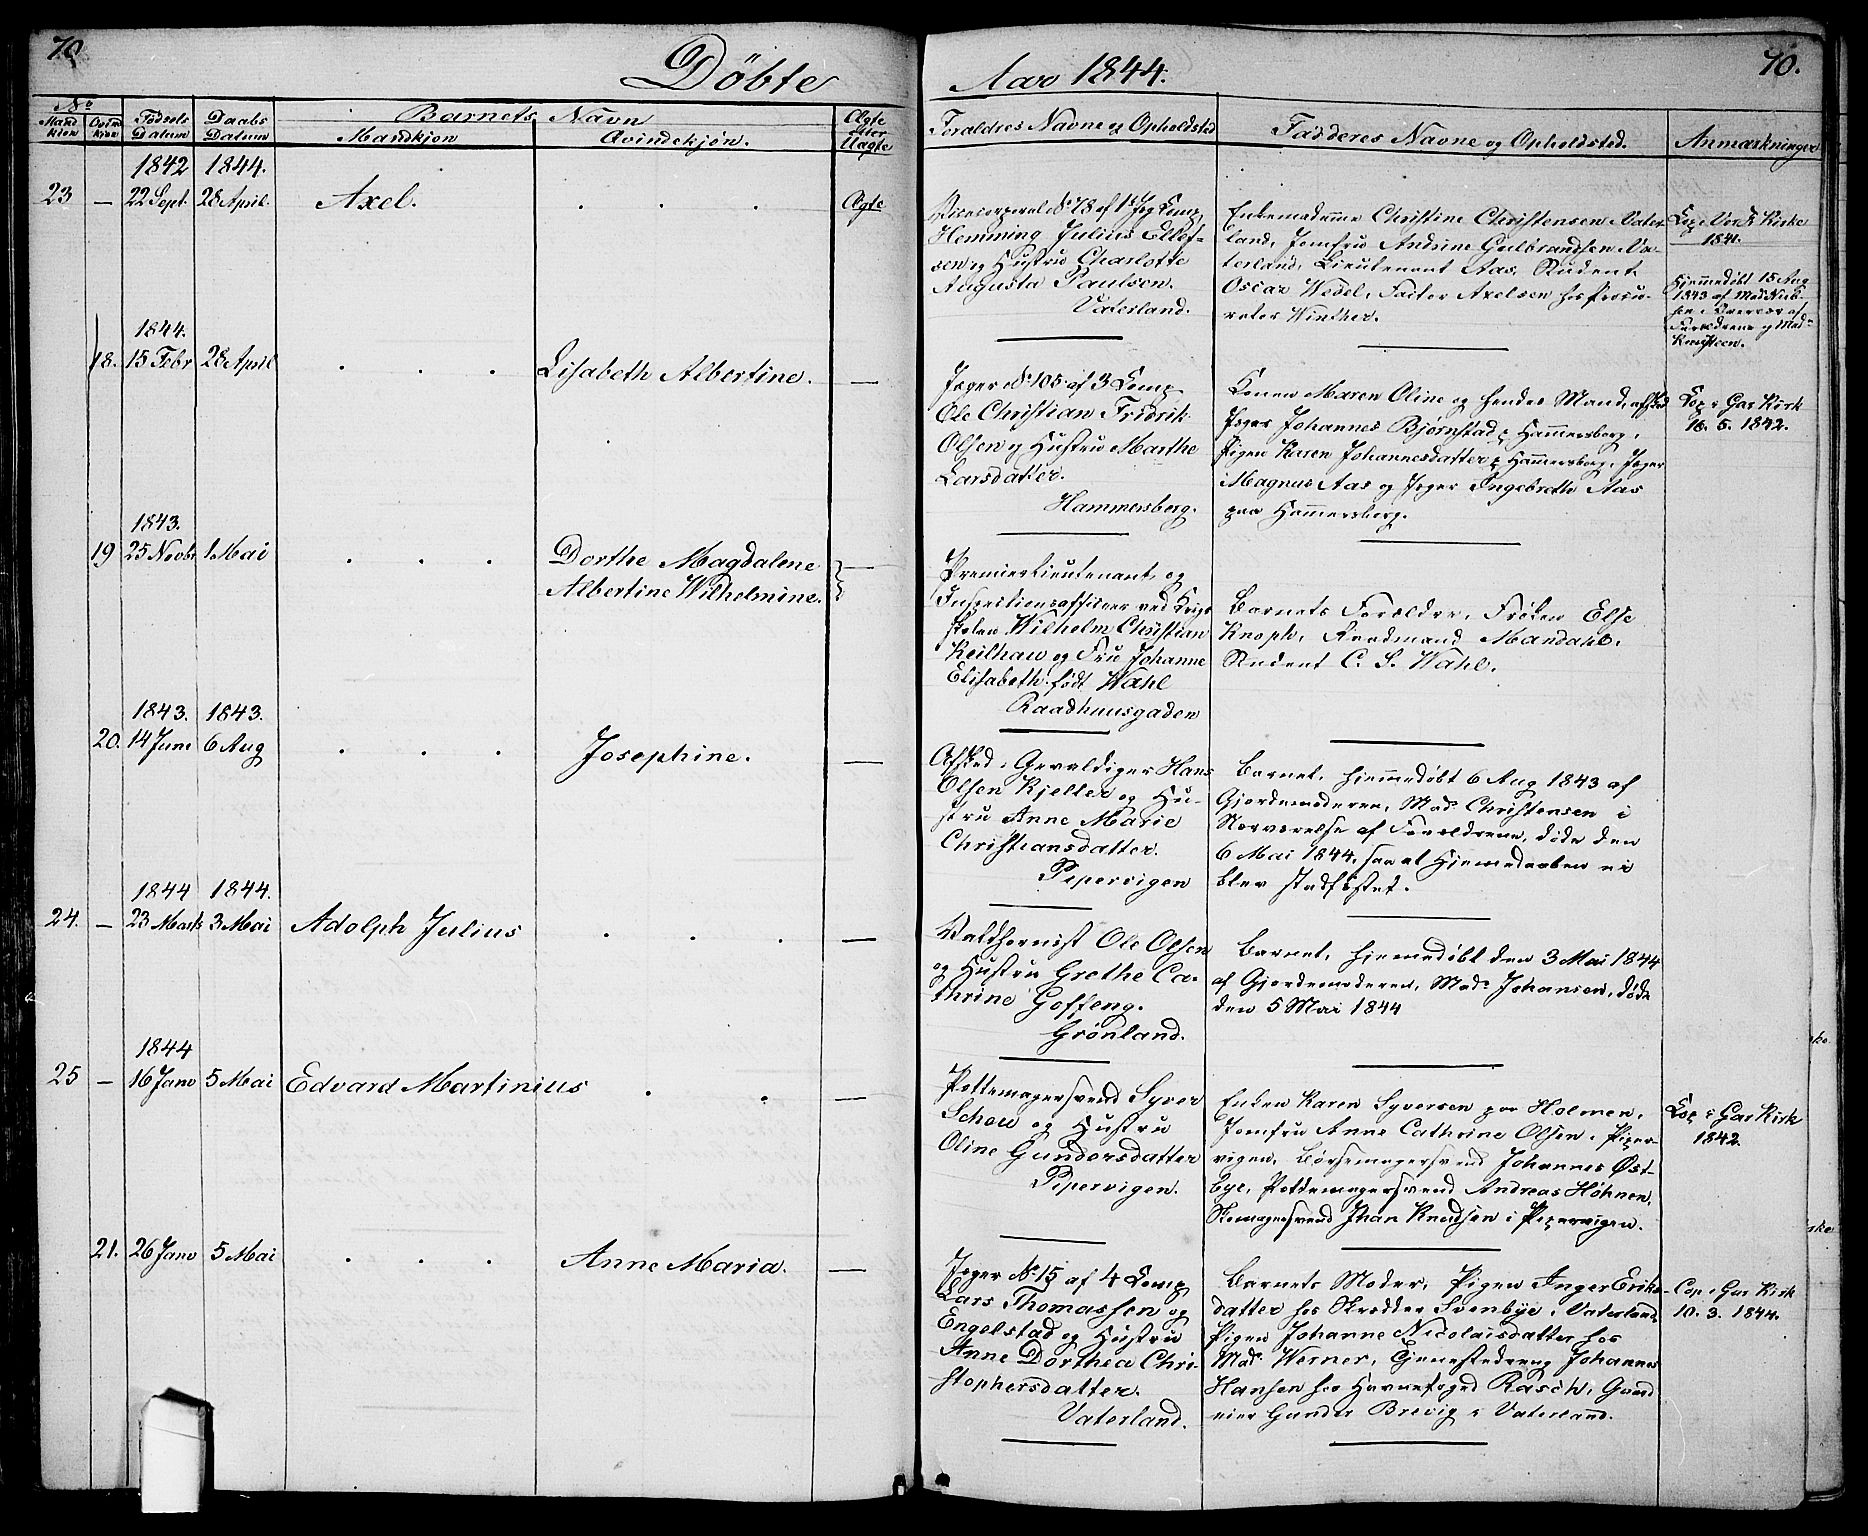 70.
Døbte
Aar 1844.
70.
No
Mandkjøn
Qvindkjøn
Fødsels Datum
Daabs Datum
Barnets Navn
Mandkjøn
Qvindekjøn.
Ægte eller Uægte
Foraldres Navne og Opholdsted
Fadderes Navne og Opholdsted.
Anmærkninger
1842 1844.
23 — 22 Sept. 28 April. Axel. . . . Ægte
Vicecorporal No 78 af 1ste Jeg Comp,
Hemming Julius Ellef-
sen og Hustru Charlotte
Augusta Paulsen.
Vaterland.
Enkemadamme Christine Christensen Vater-
land, Jomfru Andrine Gulbrandsen Va-
terland, Lieutenant Aas, Student
Oscar Wedel, Factor Axelsen hos Procu-
rator Winther.
Cop i Vor Fr Kirke
1841.
Hjemmedøbt 15 Aug
1843 af Mad Niel-
sen i Overvær af
Forældrene og Mad:
Knudsen.
1844.
18. 15 Febr 28 April . . . Lisabeth Albertine. —
Jæger No 105 af 3 Comp
Ole Christian Fridrik
Olsen og Hustru Marthe
Larsdatter.
Hammersborg.
Konen Maren Oline og hendes Mand, afsked
Jæger Johannes Bjørnstad p Hammersborg,
Pigen Karen Johannesdatter p Hammersborg, Jæger
Magnus Aas og Jæger Ingebreth Aas
paa Hammersborg.
Cop i Gar Kirk
16. 5. 1842.
1843.
19 25 Novbr 1 Mai . . . Dorthe Magdalene —
Albertine Wilhelmine.
Premierlieutenant og
Inspectionsofficer ved Krigs
skolen Wilhelm Christian
Keilhau og Fru Johanne
Elisabeth født Wahl
Raadhuusgaden
Barnets Forældre, Frøken Else
Knoph, Raadmand Mandahl,
Student C. S. Wahl.
1843. 1843.
20. 14 June 6 Aug . . . Josephine. —
Afsked: Gevaldiger Hans
Olsen Kjeller og Hu-
stru Anne Marie
Christiansdatter.
Pipervigen
Barnet, hjemmedøbt 6 Aug 1843 af
Gjordemoderen, Mad: Christensen i
Nærværelse af Forældrene, døde den
6 Mai 1844, saa at Hjemmedaaben ei
blev stadfæstet.
1844 1844.
24. — 23 Marts 3 Mai Adolph Julius . . . —
Valdhornist Ole Olsen
og Hustru Grethe Ca-
thrine Goffeng.
Grønland.
Barnet, hjemmedøbt den 3 Mai 1844
af Gjordemoderen, Mad: Johansen, døde
den 5 Mai 1844
1844
25 — 16 Janv 5 Mai Edvard Martinius . . —
Pottemagersvend Syver
Schou og Hustru
Oline Gundersdatter
Pipervigen.
Enken Karen Syversen paa Holmen,
Jomfru Anne Cathrine Olsen i Piper-
vigen, Børsemagersvend Johannes Øst-
bye, Pottemagersvend Andreas Høhnen,
Skomagersvend Johan Knudsen i Pipervigen.
Cop i Gar Kirk
1842.
21. 26 Janv 5 Mai . . . Anne Maria. —
Jæger No 15 af 4 Comp
Lars Thomassen og
Engelstad og Hustru
Anne Dorthea Chri-
stophersdatter.
Vaterland.
Barnets Moder, Pigen Inger Eriks-
datter hos Skrædder Svenbye i Vaterland,
Pigen Johanne Nicolaisdatter hos
Mad: Werner, Tjenestedreng Johannes
Hansen hos Havnefoged Rasch, Gaard
eier Gunder Brevig i Vaterland.
Cop i Gar Kirk
10. 3. 1844.